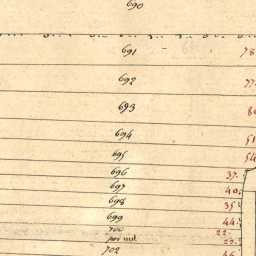 690
691 78
692 77
693 8
694 51
695 54
696 37
697 40
698 35
699 44
700 22
pour mil 23
702 46